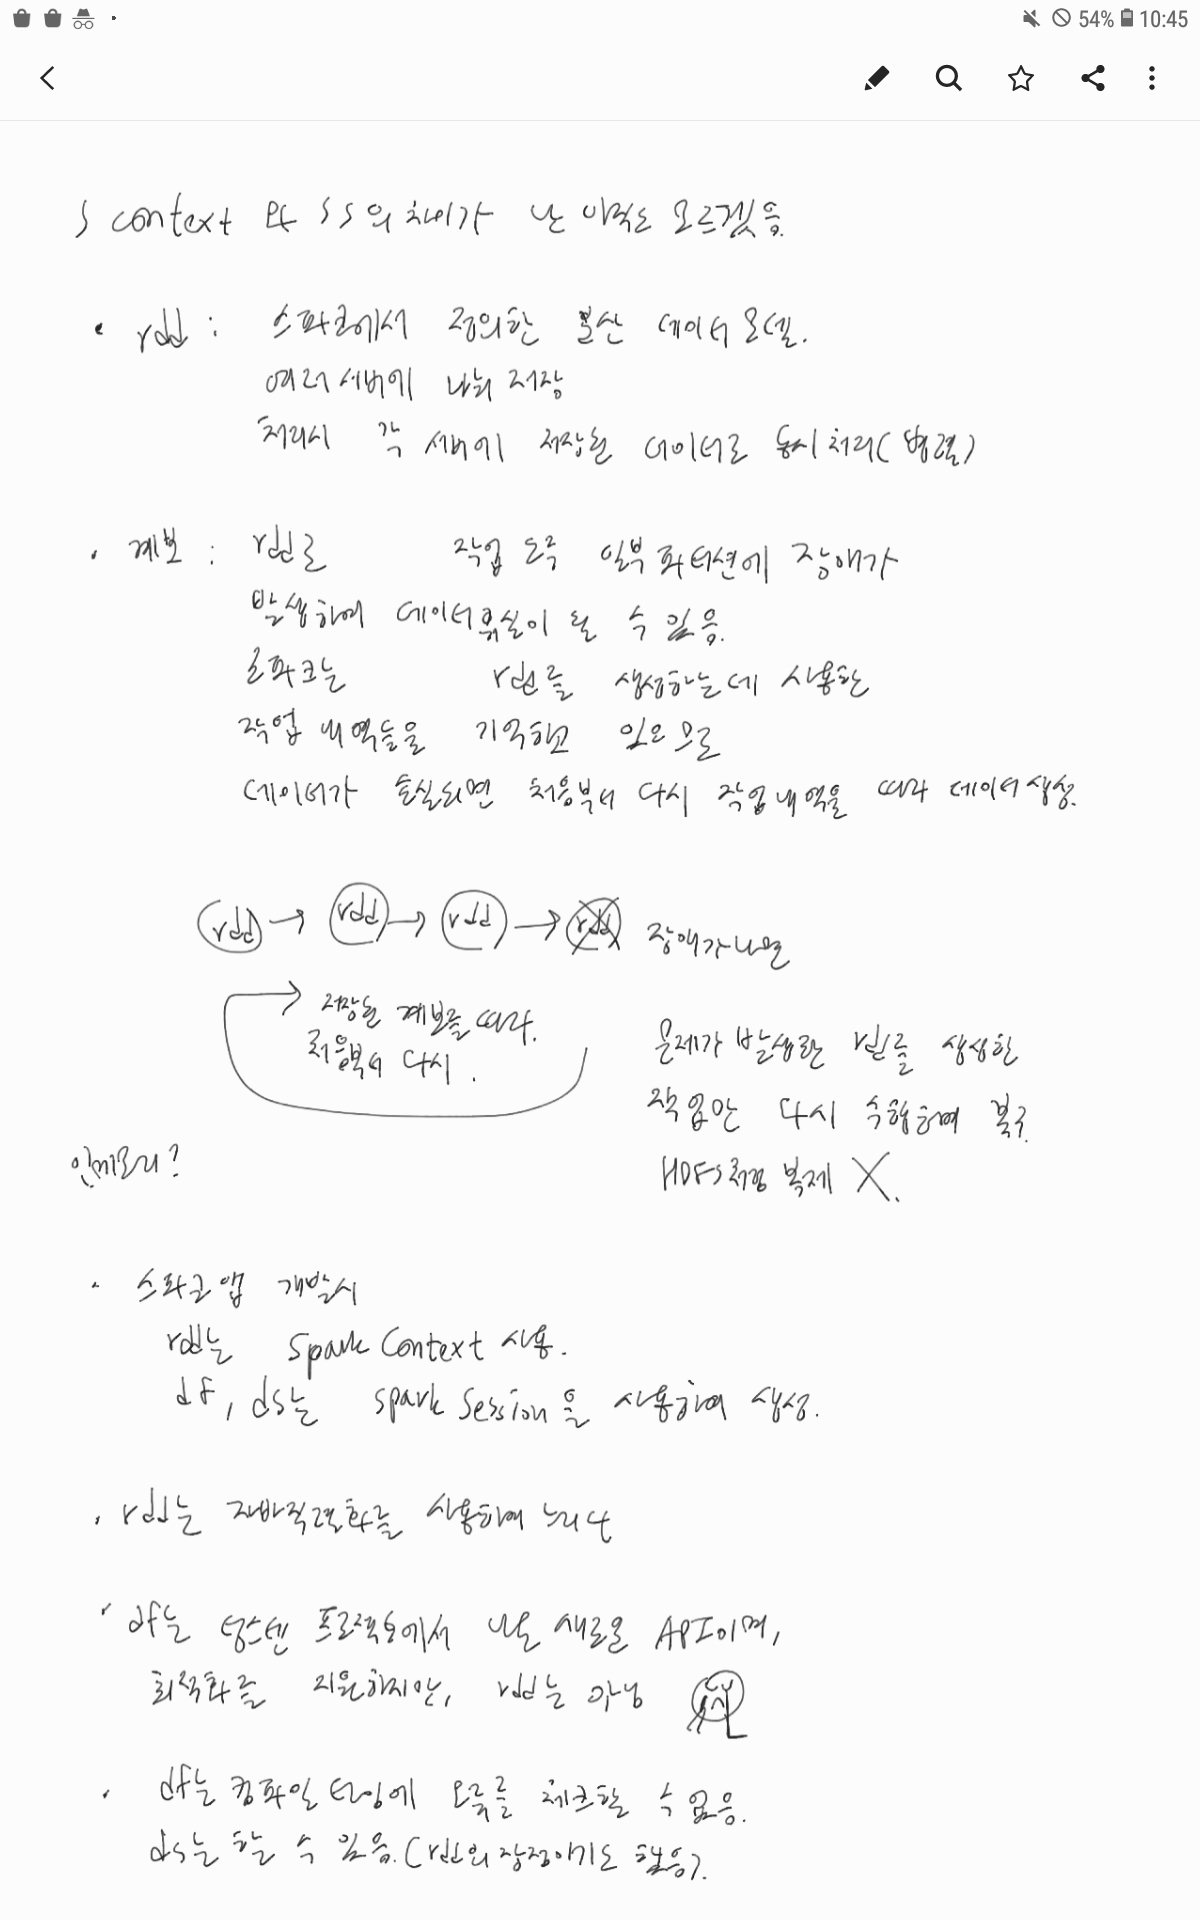 54% 10:45
S context 와 SS의 차이가 난 아직도 모르겠음.
• rdd : 스파크에서 정의한 분산 데이터 모델.
여러서버에 나눠 저장
처리시 각 서버에 저장된 데이터로 동시처리(병렬)
• 계보 : rdd로 작업 도중 일부 파티션에 장애가
발생하여 데이터 유실이 될 수 있음.
스파크는 rdd를 생성하는데 사용한
작업 내역들을 기억하고 있으므로
데이터가 손실되면 처음부터 다시 작업내역을 따라 데이터생성.
rdd → rdd → rdd → rdd 장애가나면
저장된 계보를 따라.
처음부터 다시.
문제가 발생한 rdd를 생성한
작업만 다시 수행하여 복구.
HDFS처럼 복제 X.
인메모리?
• 스파크앱 개발시
rdd는 Spark Context 사용.
df, ds는 spark Session을 사용하여 생성.
• rdd는 자바직렬화를 사용하여 느리다
• df는 텅스텐 프로젝트에서 나온 새로운 API이며,
최적화를 지원하지만, rdd는 아님
• df는 컴파일 타임에 오류를 체크할 수 없음.
ds는 할 수 있음. (rdd의 장점이기도 했음).